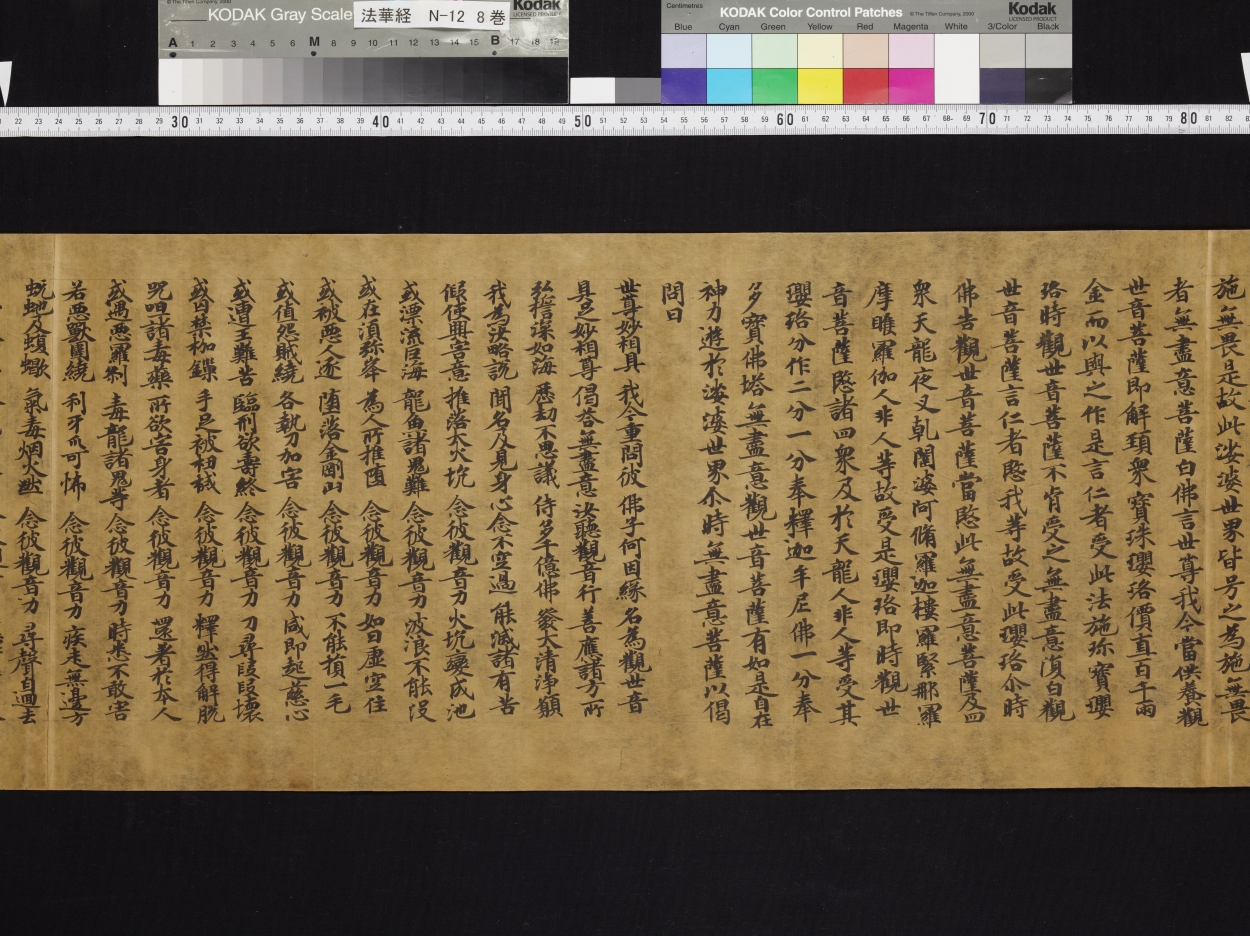 KODAK Gray Scale
法華経 N-12 8巻
Kodak
LICENSED PRODUCT
A 1 2 3 4 5 6 M 8 9 10 11 12 13 14 15 B 17 18 19
Centimetres
KODAK Color Control Patches
© The Tiffen Company, 2000
Kodak
LICENSED PRODUCT
Blue Cyan Green Yellow Red Magenta White 3/Color Black
施無畏是故此娑婆世界皆号之為施無畏
者無盡意菩薩白佛言世尊我今當供養觀
世音菩薩即解頚衆寶珠瓔珞價直百千兩
金而以與之作是言仁者受此法施珎寶瓔
珞時觀世音菩薩不肯受之無盡意復白觀
世音菩薩言仁者愍我等故受此瓔珞尒時
佛告觀世音菩薩當愍此無盡意菩薩及四
衆天龍夜叉乹闥婆阿脩羅迦樓羅緊那羅
摩睺羅伽人非人等故受是瓔珞即時觀世
音菩薩愍諸四衆及於天龍人非人等受其
瓔珞分作二分一分奉釋迦牟尼佛一分奉
多寶佛塔無盡意觀世音菩薩有如是自在
神力遊於娑婆世界尒時無盡意菩薩以偈
問曰
世尊妙相具 我今重問彼 佛子何因縁 名為觀世音
具足妙相尊 偈荅無盡意 汝聽觀音行 善應諸方所
弘誓深如海 歴劫不思議 侍多千億佛 發大清淨願
我為汝略説 聞名及見身 心念不空過 能滅諸有苦
假使興害意 推落大火坑 念彼觀音力 火坑變成池
或漂流巨海 龍魚諸鬼難 念彼觀音力 波浪不能没
或在湏弥峯 為人所推堕 念彼觀音力 如日虚空住
或被悪人逐 堕落金剛山 念彼觀音力 不能損一毛
或值怨賊繞 各執刀加害 念彼觀音力 咸即起慈心
或遭王難苦 臨刑欲壽終 念彼觀音力 刀尋段段壞
或囚禁枷鏁 手足被杻械 念彼觀音力 釋然得解脱
呪咀諸毒藥 所欲害身者 念彼觀音力 還著於本人
或遇悪羅剎 毒龍諸鬼等 念彼觀音力 時悉不敢害
若悪獸圍繞 利牙爪可怖 念彼觀音力 疾走無邊方
蚖虵及蝮蠍 氣毒烟火燃 念彼觀音力 尋聲自迴去